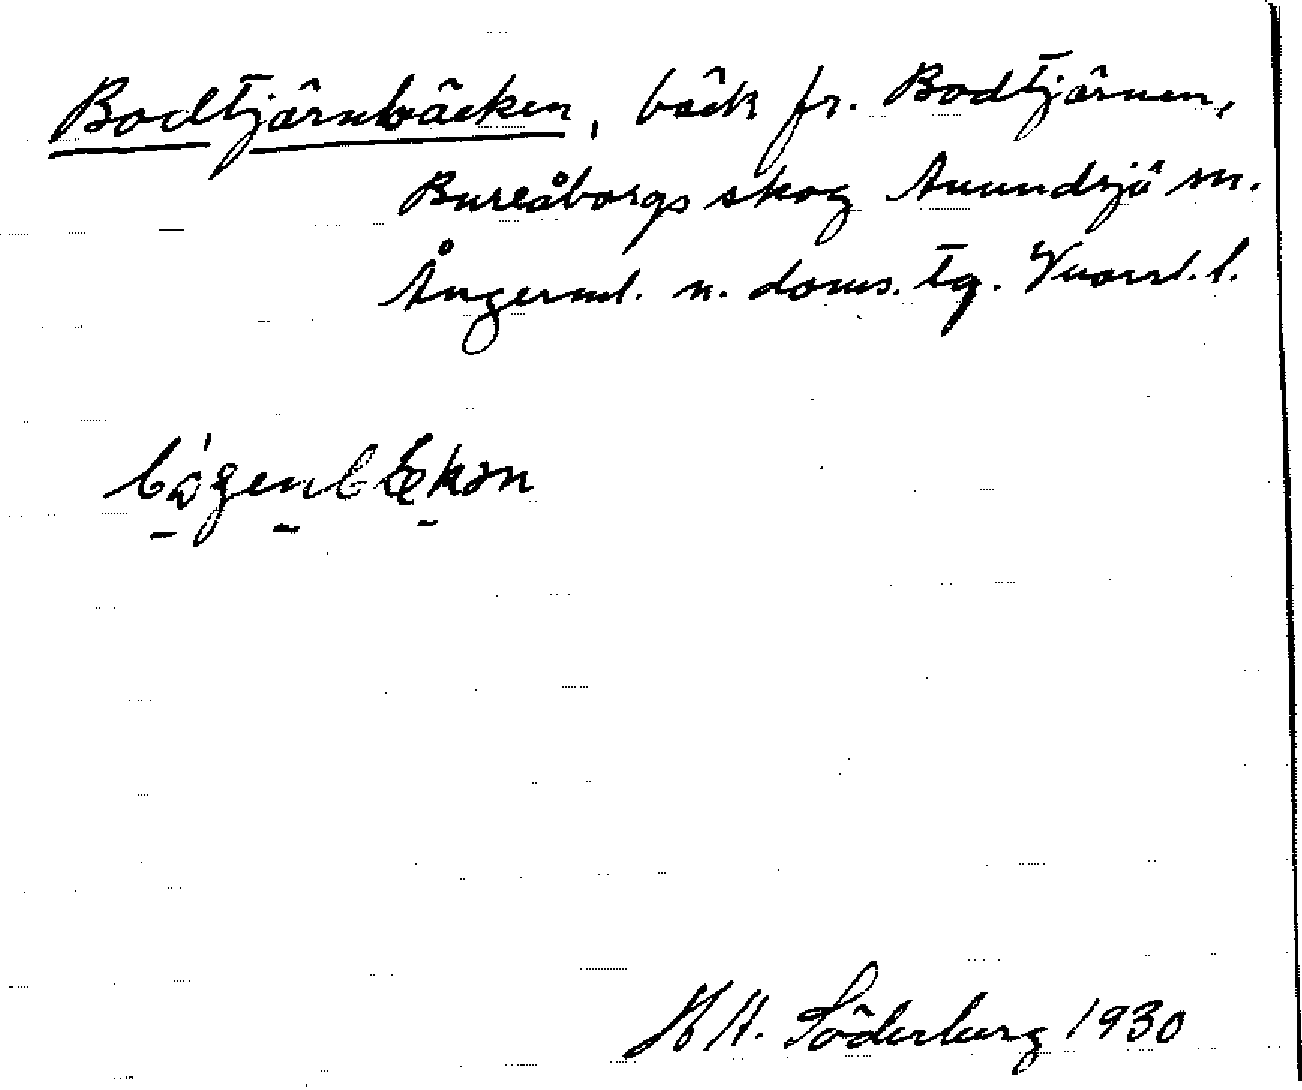 Bodtjärnbäcken, bäck fr. Bodtjärnen,
Bureåborgs skog Anundsjö sn.
Ångerml. n. doms. tg. Västl. l.
H. Söderberg 1930